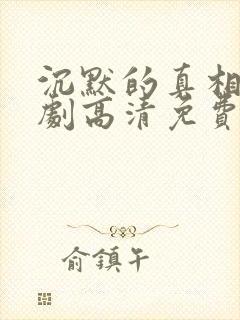 沉默的真相
劇高清免費
俞鎮午